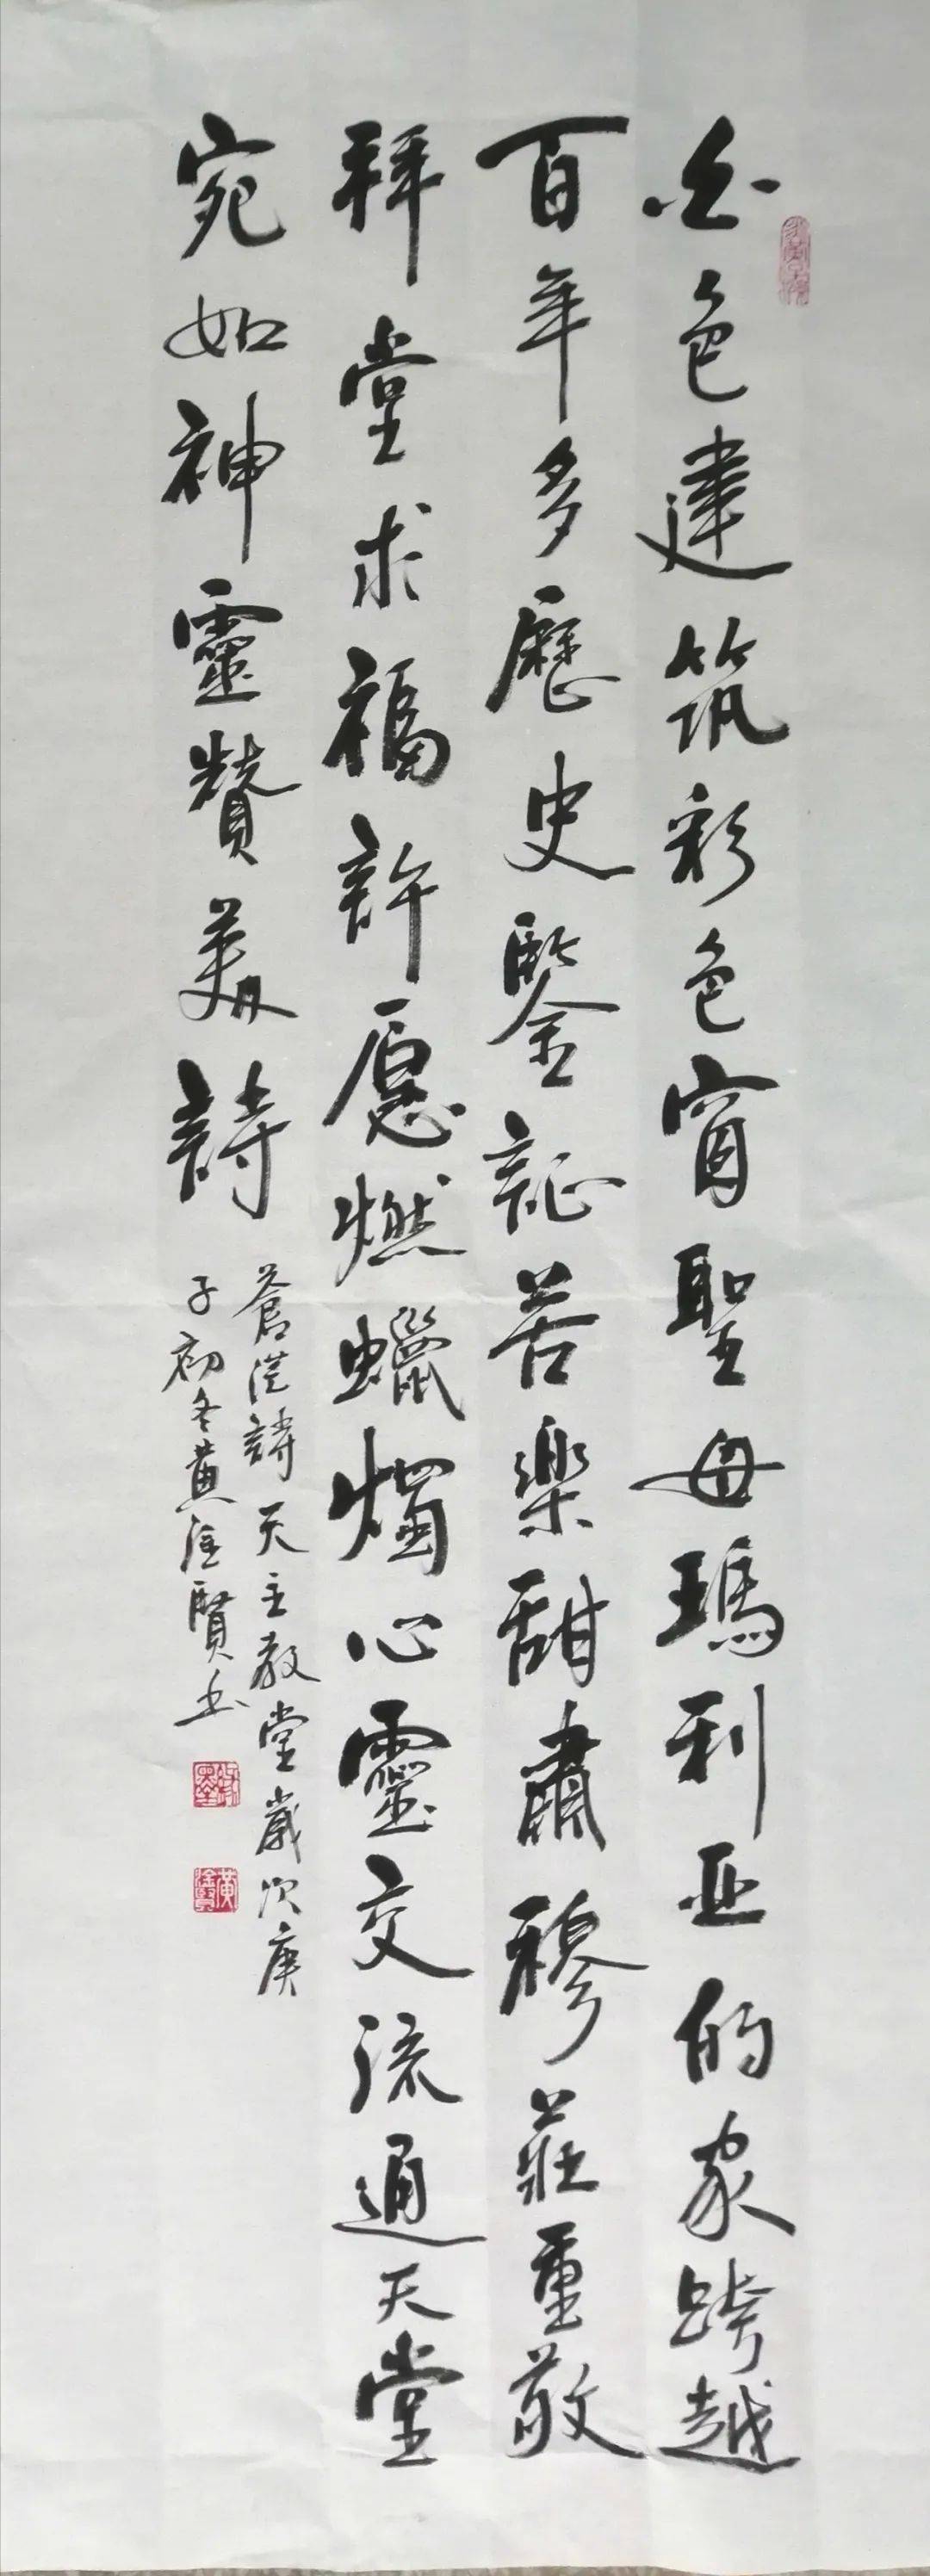 白色建筑彩色窗聖母瑪利亞的家跨越
百年多歷史鑒証苦樂甜肅穆莊重敬
拜堂求福許愿燃蠟燭心靈交流通天堂
宛如神靈贊美詩
蒼茫詩天主教堂歲次庚
子初冬黄淦賢书